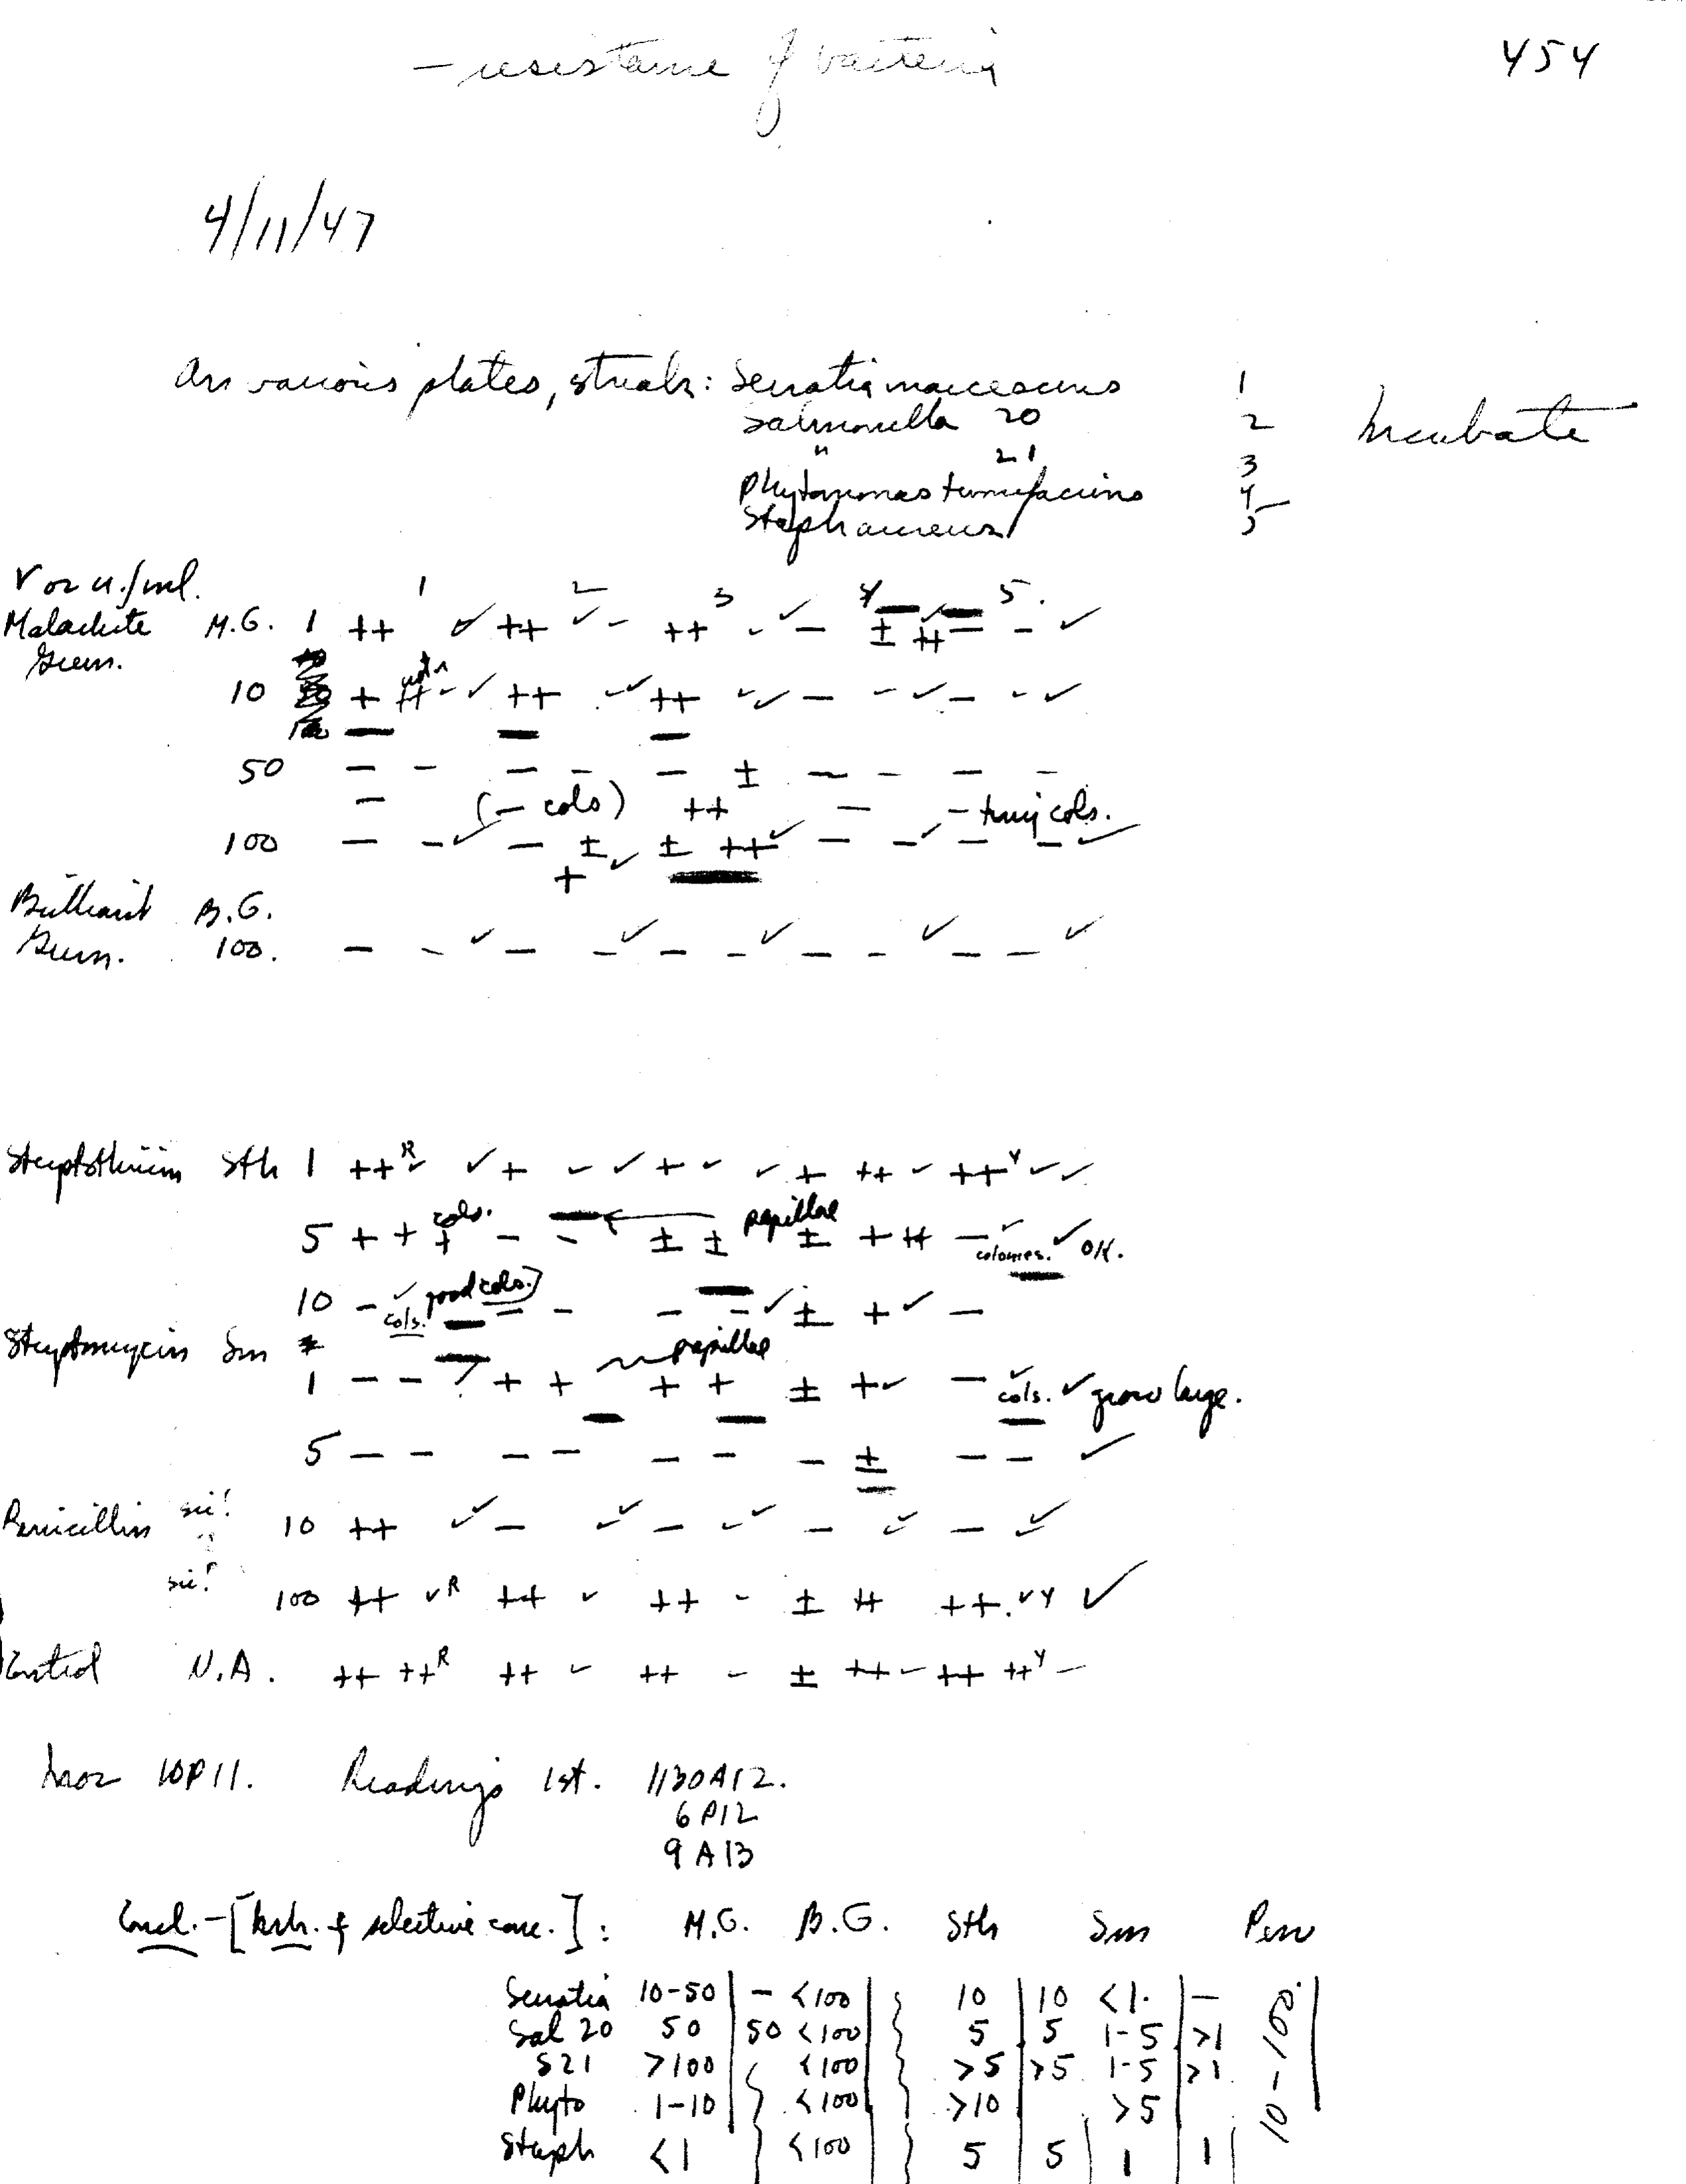 — resistance of bacteria 454
4/11/47
On various plates, streak: Serratia marcescens 1
Salmonella 20 2 Incubate
" 21 3
Phytomonas tumefaciens 4
Staph aureus 5
γ or u./ml. 1 2 3 4 5.
Malachite M.G. 1 ++ ✓ ++ ✓ – ++ – ✓ – ± ✓ ++ – – ✓
Green.
10 + ++ – ✓ ++ – ✓ ++ ✓ ✓ – – ✓ – – ✓
50 – – – – – ± – – – –
– (– cols) ++ – – tiny cols.
100 – – ✓ – ± ✓ ± ++ ✓ – – ✓ – – ✓
+
Brilliant B.G.
Green. 100. – – ✓ – – ✓ – – ✓ – – ✓ – – ✓
Streptothricin Sth 1 ++ R ✓ ✓ + – ✓ + ✓ ✓ + ++ ✓ ++ Y ✓ ✓
cols. papillae
5 + + + – – ± ± ± + ++ – ✓ colonies. ✓ OK.
10 – ✓ cols. good cols.] – – – – ✓ ± + ✓ –
Streptomycin Sm papillae
1 – – ? + + + + ± + ✓ – ✓ cols. ✓ grow large.
5 – – – – – – – ± – – ✓
Penicillin sic! 10 ++ ✓ – ✓ – ✓ – ✓ – ✓
sic! 100 ++ ✓ R ++ ✓ ++ – ± ++ ++. ✓ Y ✓
Control N.A. ++ ++ R ++ – ++ – ± ++ – ++ ++ Y –
10P11. Readings 1st. 1130A12.
6P12
9A13
Concl. – [ . of selective conc.]: M.G. B.G. Sth Sm Pen
Serratia 10-50 – <100 10 10 <1. –
Sal 20 50 50 <100 5 5 1-5 >1
S21 >100 <100 >5 >5 1-5 >1
Phyto 1-10 <100 >10 >5
Staph <1 <100 5 5 1 1
10-100.